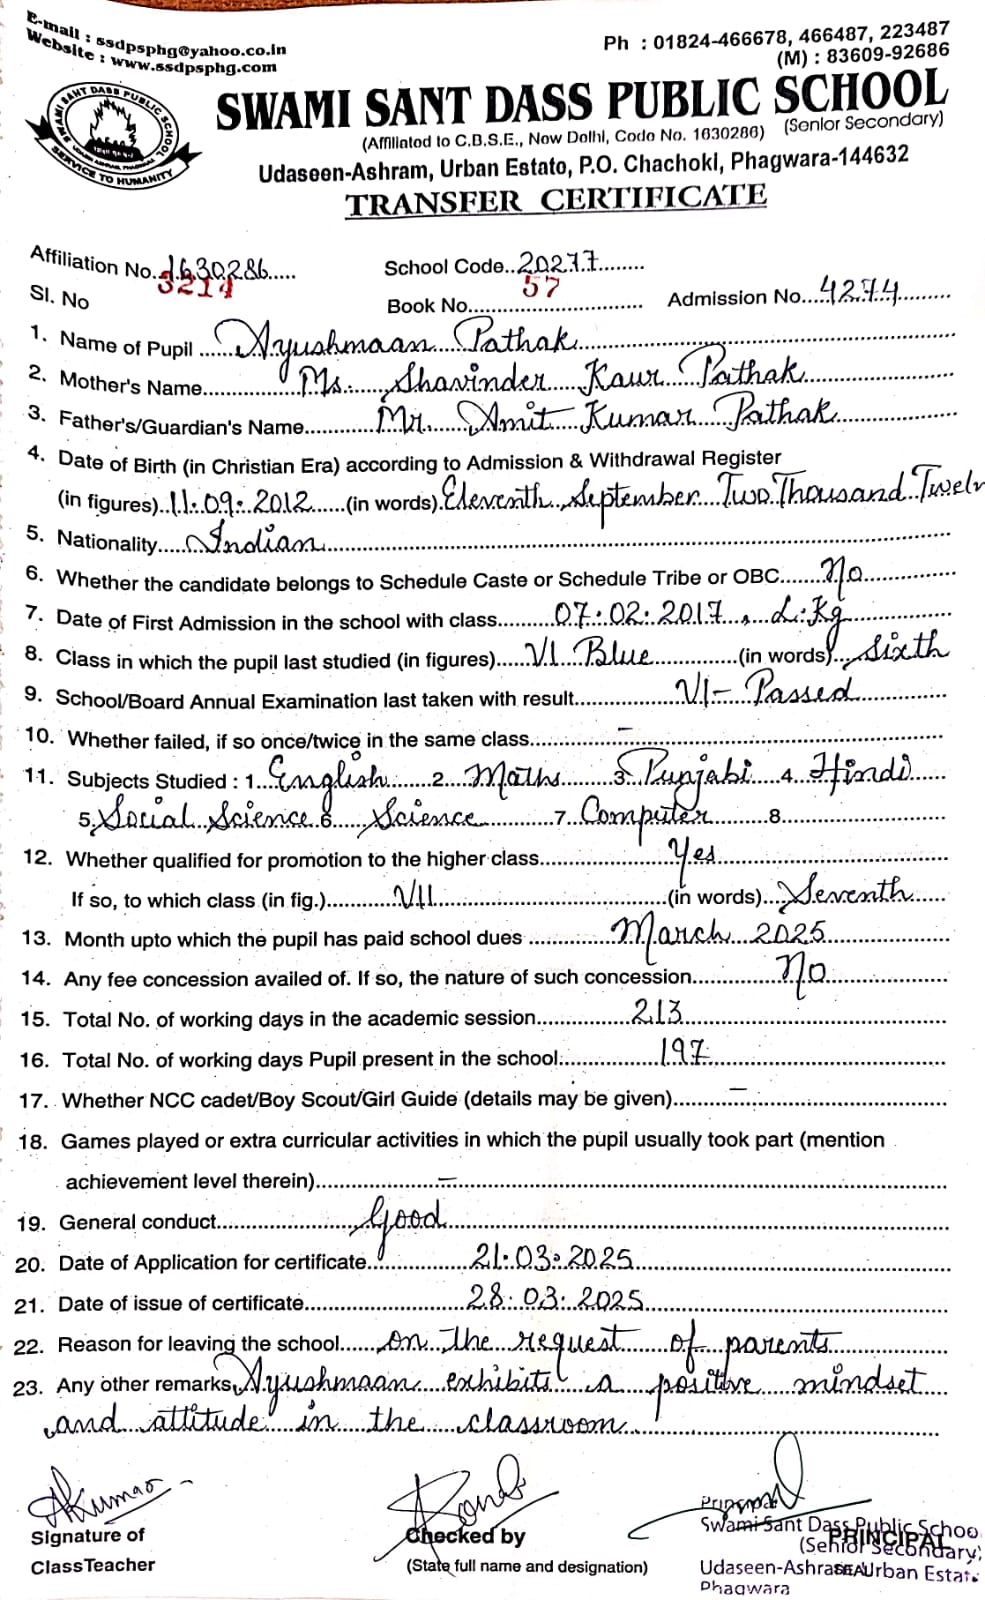 E-mail : ssdpsphg@yahoo.co.in
Website : www.ssdpsphg.com
Ph : 01824-466678, 466487, 223487
(M) : 83609-92686
SWAMI SANT DASS PUBLIC SCHOOL
SWAMI SANT DASS PUBLIC SCHOOL
SERVICE TO HUMANITY
(Affiliated to C.B.S.E., New Delhi, Code No. 1630286) (Senior Secondary)
Udaseen-Ashram, Urban Estato, P.O. Chachoki, Phagwara-144632
TRANSFER CERTIFICATE
Affiliation No. 1630286 School Code 20277
Sl. No 3214 Book No. 57 Admission No. 4274
1. Name of Pupil Ayushmaan Pathak
2. Mother's Name Ms. Shavinder Kaur Pathak
3. Father's/Guardian's Name Mr. Amit Kumar Pathak
4. Date of Birth (in Christian Era) according to Admission & Withdrawal Register
(in figures) 11.09.2012 (in words) Eleventh September Two Thousand Twelv
5. Nationality Indian
6. Whether the candidate belongs to Schedule Caste or Schedule Tribe or OBC No
7. Date of First Admission in the school with class 07.02.2017, L.Kg
8. Class in which the pupil last studied (in figures) VI Blue (in words) Sixth
9. School/Board Annual Examination last taken with result VI- Passed
10. Whether failed, if so once/twice in the same class –
11. Subjects Studied : 1. English 2. Maths 3. Punjabi 4. Hindi
5. Social Science 6. Science 7. Computer 8.
12. Whether qualified for promotion to the higher class Yes
If so, to which class (in fig.) VII (in words) Seventh
13. Month upto which the pupil has paid school dues March 2025
14. Any fee concession availed of. If so, the nature of such concession No
15. Total No. of working days in the academic session 213
16. Total No. of working days Pupil present in the school: 197
17. Whether NCC cadet/Boy Scout/Girl Guide (details may be given) –
18. Games played or extra curricular activities in which the pupil usually took part (mention
achievement level therein) –
19. General conduct Good
20. Date of Application for certificate 21.03.2025
21. Date of issue of certificate 28.03.2025
22. Reason for leaving the school on the request of parents
23. Any other remarks Ayushmaan exhibits a positive mindset
and attitude in the classroom
AKumar
Signature of
ClassTeacher
Checked by
(State full name and designation)
Principal
Swami Sant Dass Public Schoo
PRINCIPAL
(Senior Secondary)
Udaseen-Ashra Urban Estat.
SEAL
Phagwara